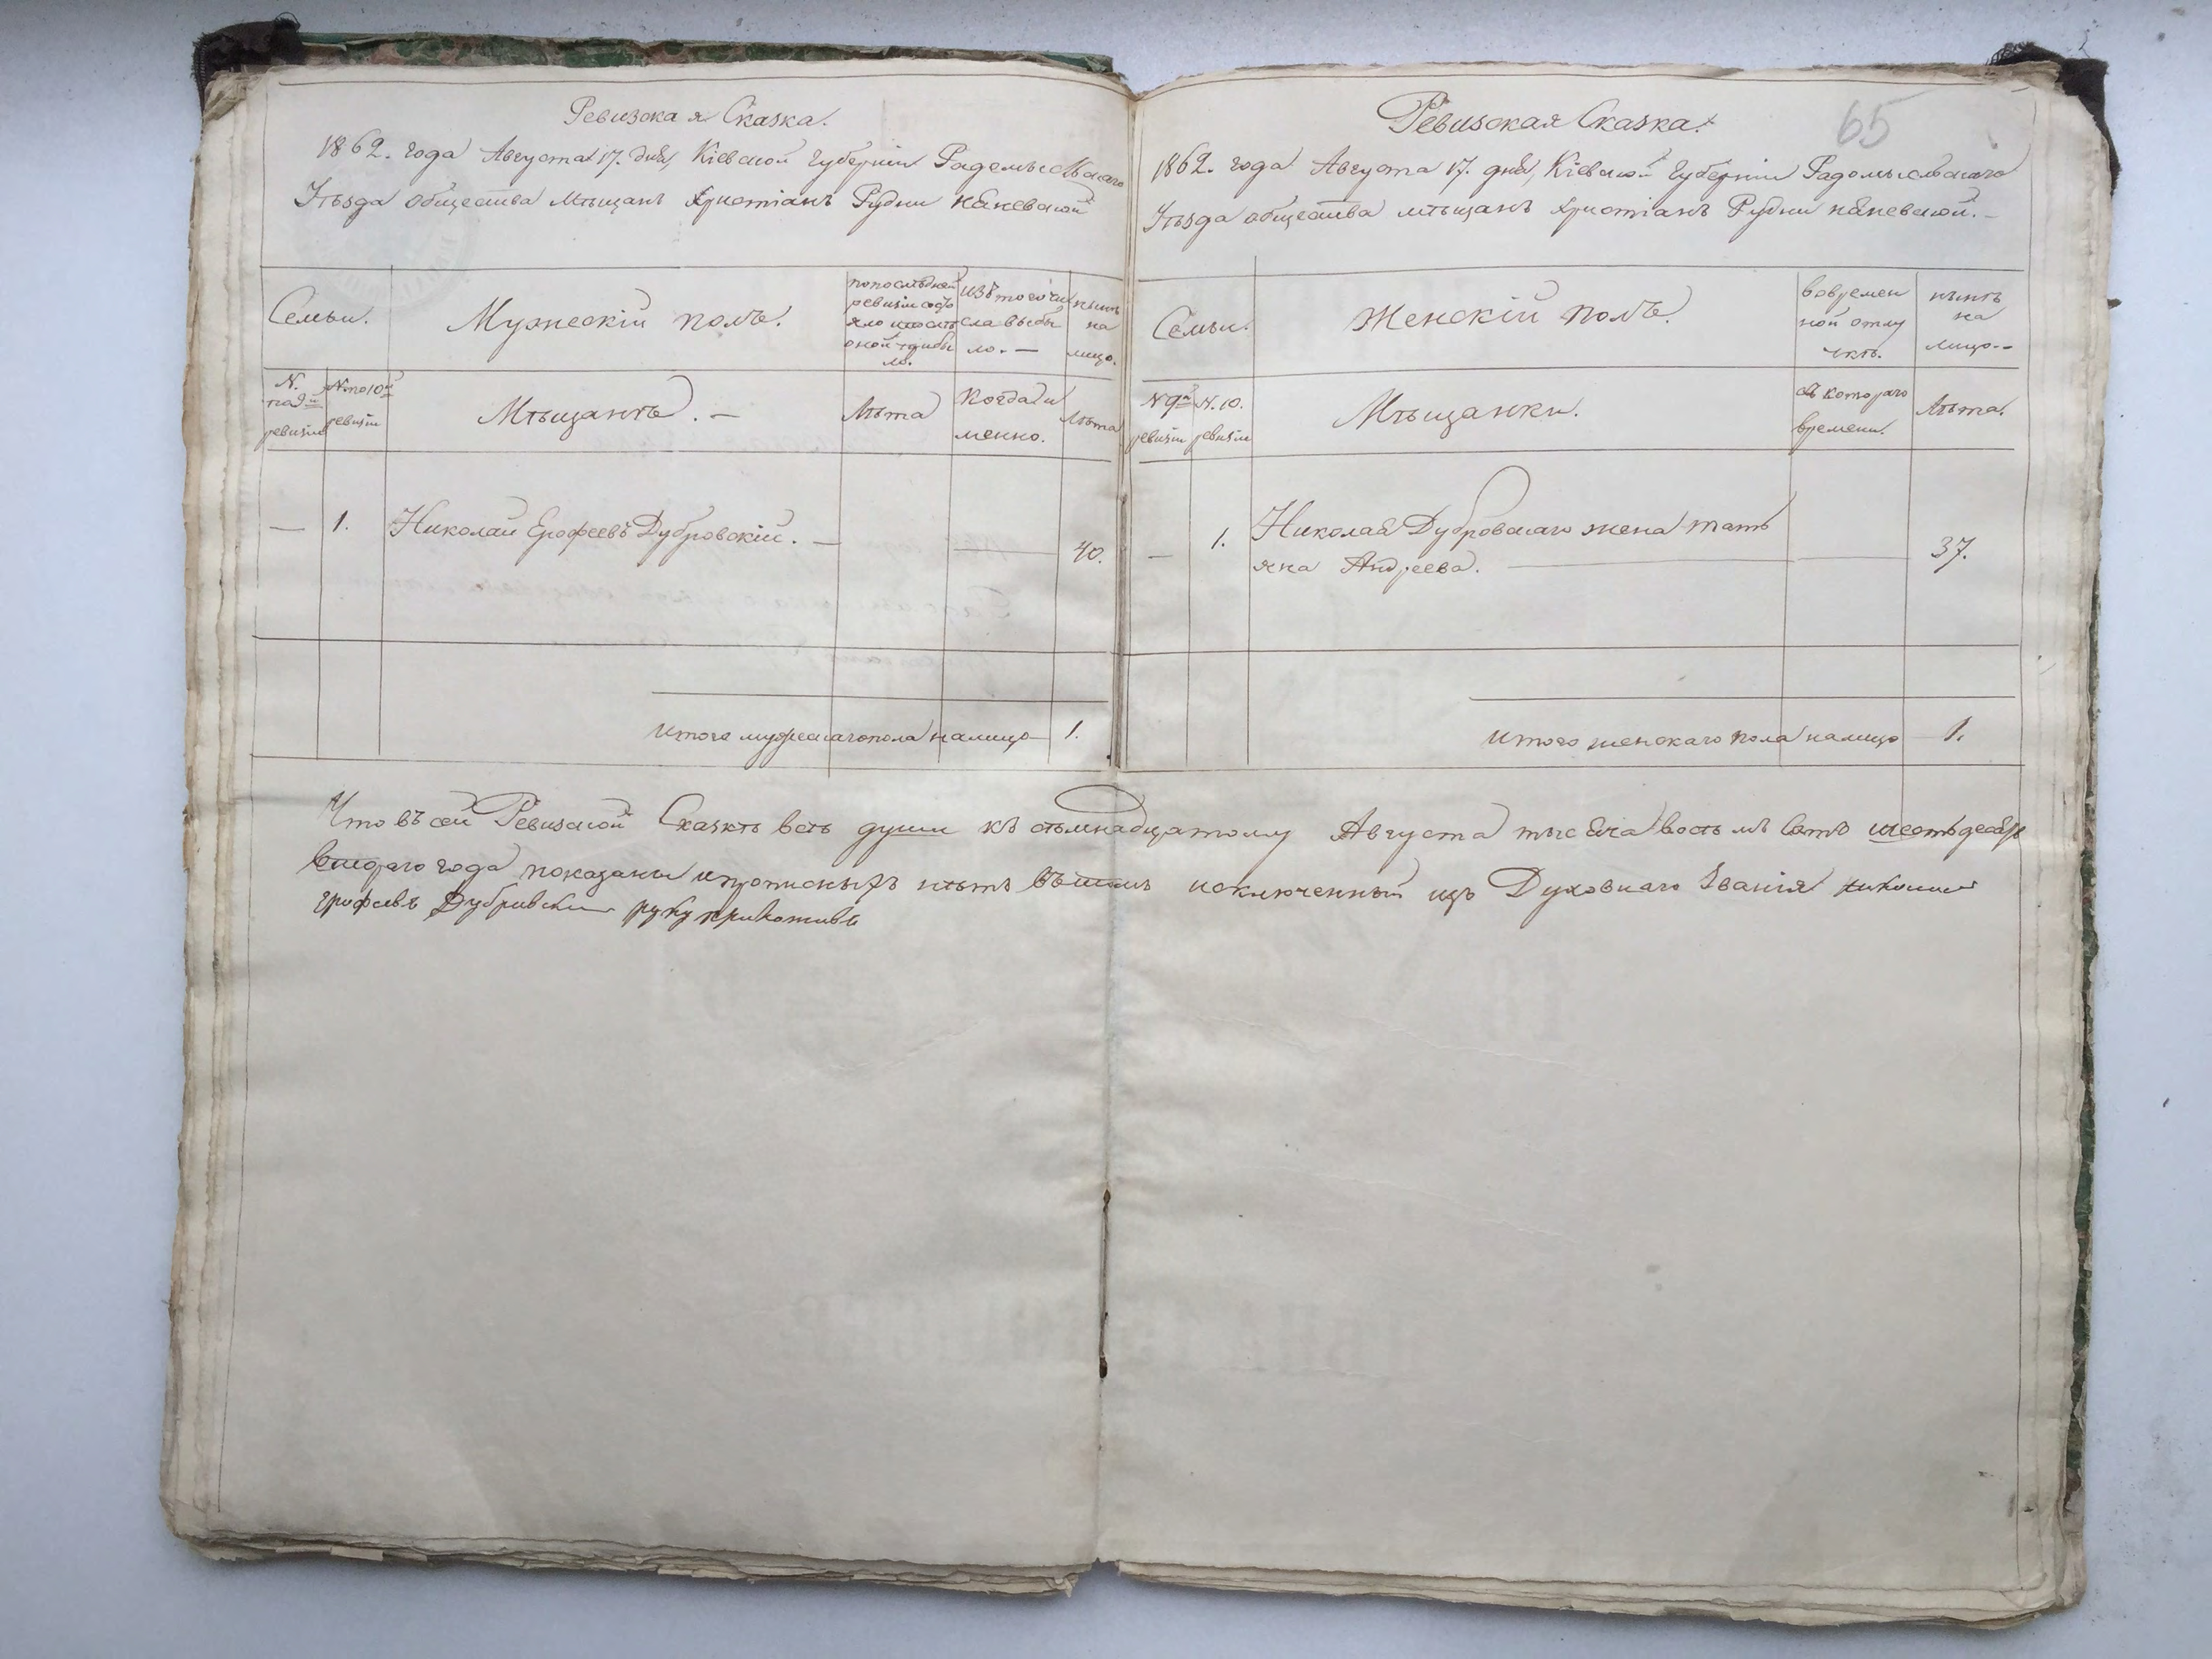 Ревизская Сказка.
1862. года Августа 17. дня, Кіевской Губерніи Радомысльскаго
Уѣзда общества Мѣщанъ Християнъ Рудни каневской
Семьи.
Мужескій полъ.
по послѣдней
ревизіи состо
яло и послѣ
оной прибы
ло.
изъ того чи
сла выбы
ло. —
нынѣ
на
лицо.
N.
по 9й
ревизіи
N. по 10й
ревизіи
Мѣщанѣ. —
Лѣта
Когда и
менно.
Лѣта
— 1. Николай Ерофеевъ Дубровскій. — — 40.
Итого мужескаго пола на лицо — 1.
Ревизская Сказка.
65
1862. года Августа 17. дня, Кіевской Губерніи Радомысльскаго
Уѣзда общества мѣщанъ Християнъ Рудни каневской. —
Семьи.
Женскій полъ.
во времен
ной отлу
чкѣ.
нынѣ
на
лицо. —
N 9й
ревизіи
N. 10.
ревизіи
Мѣщанки.
съ котораго
времени.
Лѣта.
— 1. Николая Дубровскаго жена Тать
яна Андреева. — — 37.
Итого женскаго пола на лицо — 1.
Что въ сей Ревизской Сказкѣ всѣ души къ семнадцатому Августа тысяча восѣмъ сотъ шестьдесятъ
втораго года показаны и прописныхъ нѣтъ въ томъ исключенный изъ Духовнаго Званія николай
Ерофеевъ Дубровский руку приложивъ